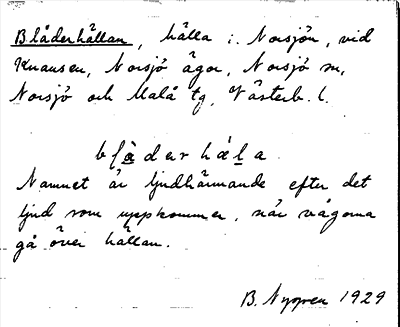 Blåderhällan, hälla i Norsjön, vid
Knausen, Norsjö ägor, Norsjö sn,
Norsjö och Malå tg, Västerb. l.
blåderhäla
Namnet är ljudhärmande efter det
ljud som uppkommer, när vågorna
gå över hällan.
B. Nygren 1929